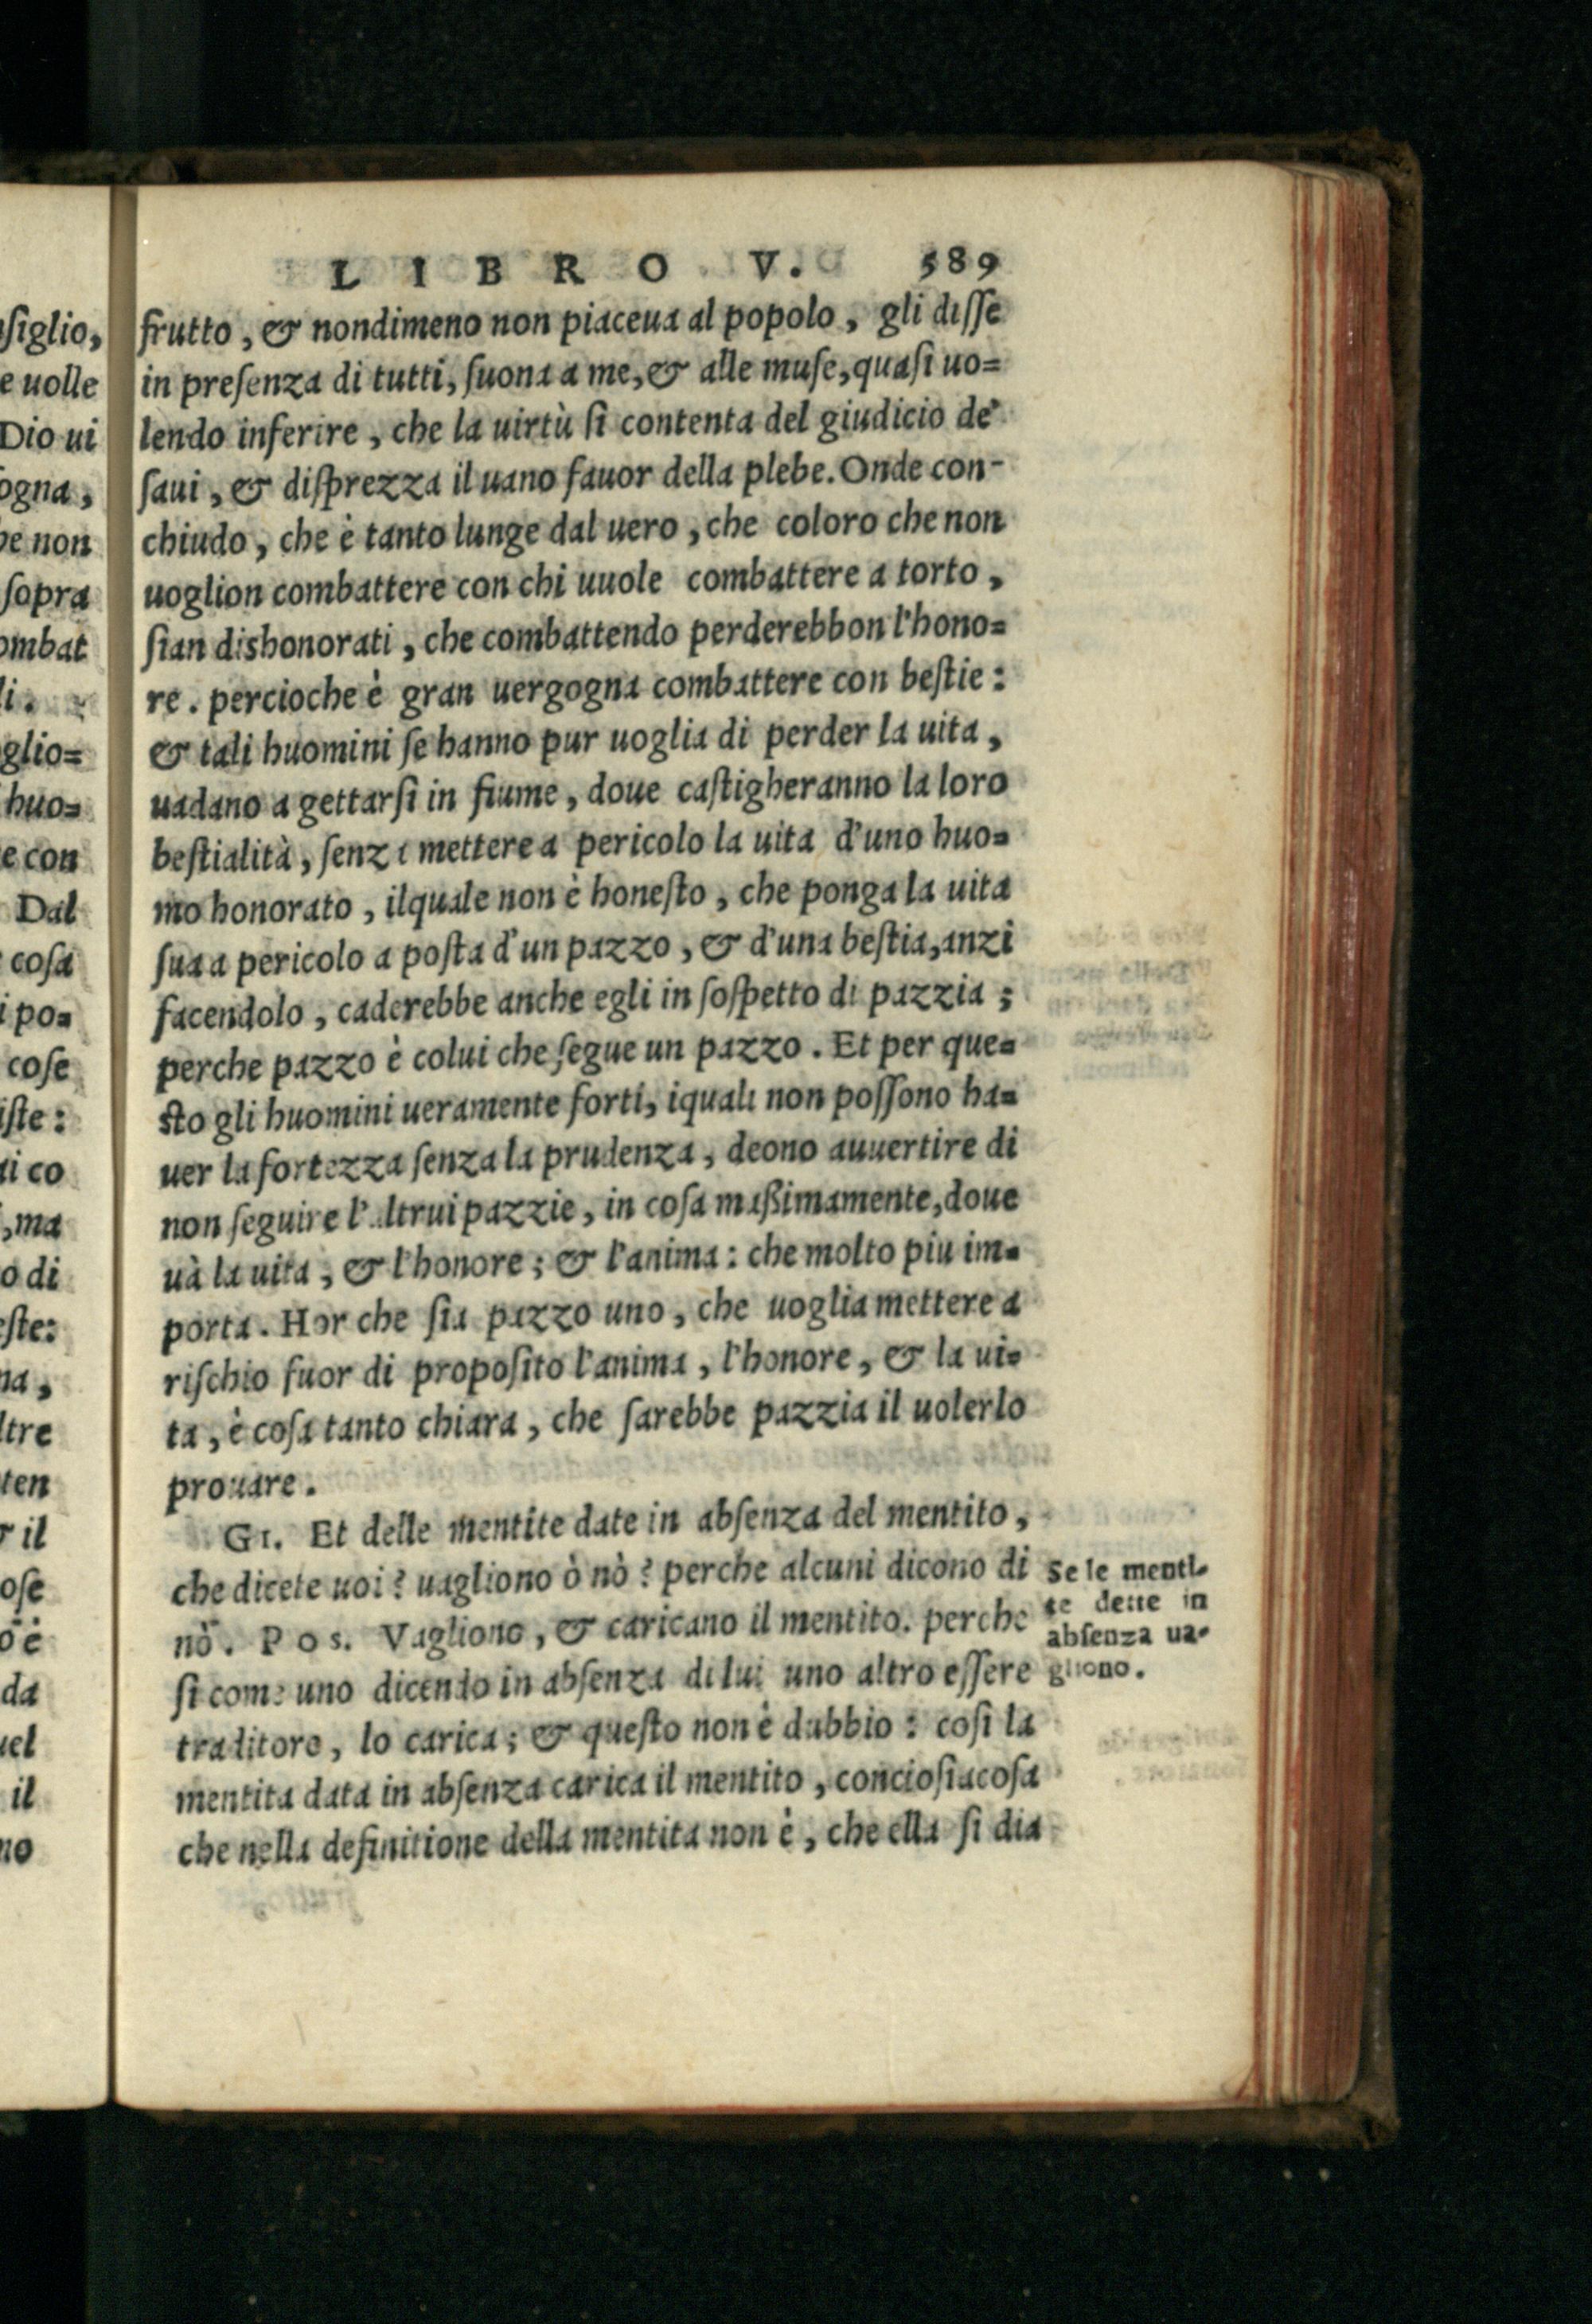 LIBRO V. 589
frutto, & nondimeno non piaceua al popolo, gli diſſe
in preſenza di tutti, ſuona a me, & alle muſe, quaſi uo=
lendo inferire, che la uirtù ſi contenta del giudicio de'
ſaui, & diſprezza il uano fauor della plebe. Onde con-
chiudo, che è tanto lunge dal uero, che coloro che non
uoglion combattere con chi uuole combattere a torto,
ſian dishonorati, che combattendo perderebbon l'hono=
re. percioche è gran uergogna combattere con beſtie:
& tali huomini ſe hanno pur uoglia di perder la uita,
uadano a gettarſi in fiume, doue caſtigheranno la loro
beſtialità, ſenza mettere a pericolo la uita d'uno huo=
mo honorato, ilquale non è honeſto, che ponga la uita
ſua a pericolo a poſta d'un pazzo, & d'una beſtia, anzi
facendolo, caderebbe anche egli in ſoſpetto di pazzia;
perche pazzo è colui che ſegue un pazzo. Et per que=
ſto gli huomini ueramente forti, iquali non poſſono ha=
uer la fortezza ſenza la prudenza, deono auuertire di
non ſeguire l'altrui pazzie, in coſa maßimamente, doue
uà la uita, & l'honore; & l'anima: che molto piu im=
porta. Hor che ſia pazzo uno, che uoglia mettere a
riſchio fuor di propoſito l'anima, l'honore, & la ui=
ta, è coſa tanto chiara, che ſarebbe pazzia il uolerlo
prouare.
GI. Et delle mentite date in abſenza del mentito,
che dicete uoi? uagliono ò nò? perche alcuni dicono di
nò. POS. Vagliono, & caricano il mentito. perche
ſi come uno dicendo in abſenza di lui uno altro eſſere
traditore, lo carica; & queſto non è dubbio: coſi la
mentita data in abſenza carica il mentito, concioſiacoſa
che nella definitione della mentita non è, che ella ſi dia
Se le menti=
te dette in
abſenza ua=
gliono.
ſiglio,
e uolle
Dio ui
ogna,
be non
ſopra
ombat
li.
glio=
huo=
e con
Dal
coſa
i po=
coſe
iſte:
ui co
, ma
o di
eſte:
na,
ltre
ten
& il
oſe
ò è
da
uel
il
no